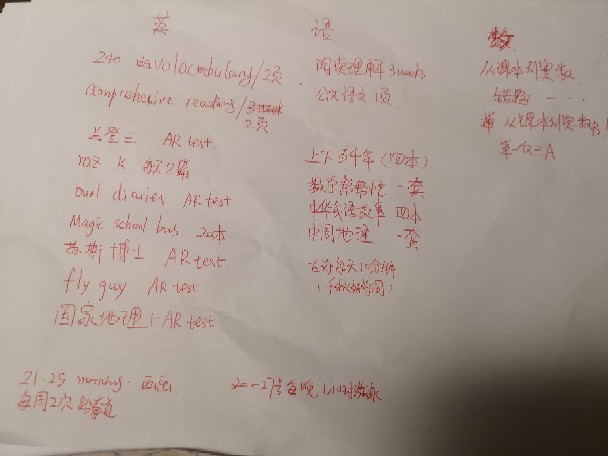 英
240 vocabulary/2页
Comprehensive reading/3 week
2页
兰登三 AR test
raz K 每天2篇
owl diaries AR test
Magic school bus 20本
苏斯博士 AR test
fly guy AR test
国家地理1 AR test
语
阅读理解 3 weeks
公文语文1页
上下五千年(四本)
数学 一套
中华成语故事 四本
中国地理 一套
古诗每天10分钟
数
从课本到奥数
错题
从课本到奥数
单位=A
21-25 morning 画画
每周2次跆拳道
20-27号每晚,1小时游泳